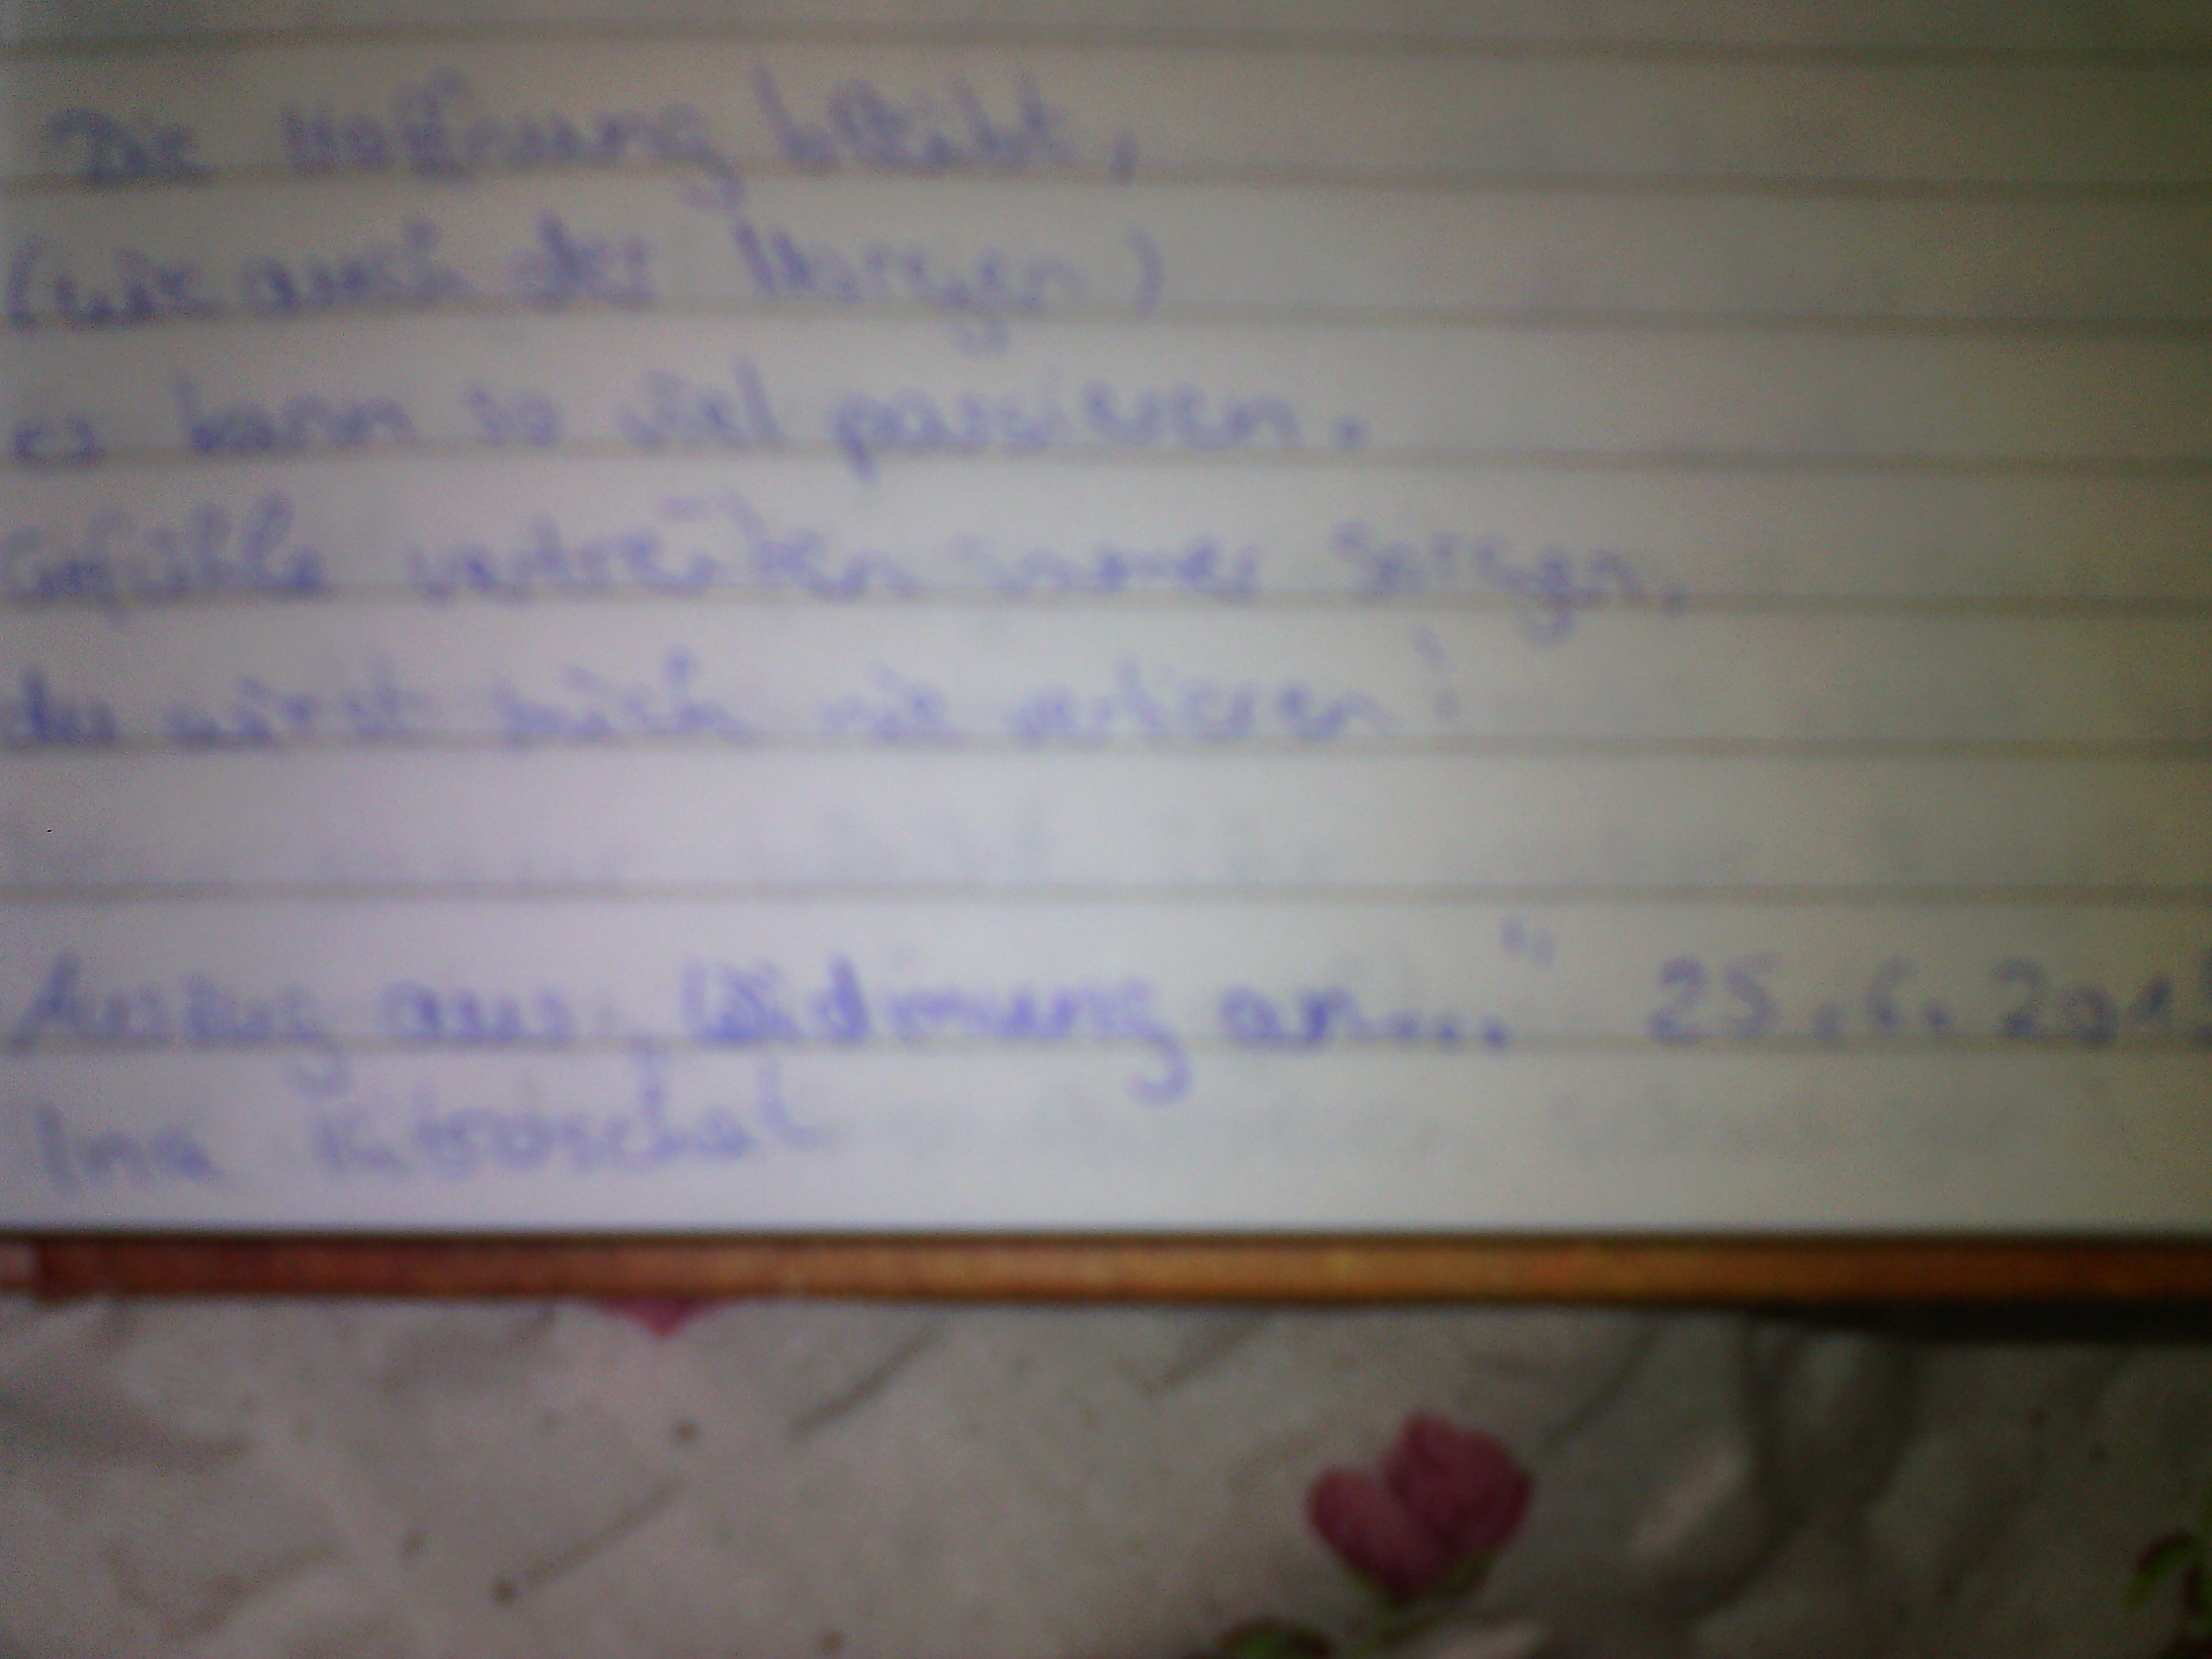 Die Hoffnung bleibt,
(wie auch der Morgen)
es kann so viel passieren.
Gefühle vertreiben Sorgen,
du wirst mich nie verlieren!
Auszug aus "Widmung an..." 25.6.201
Ina